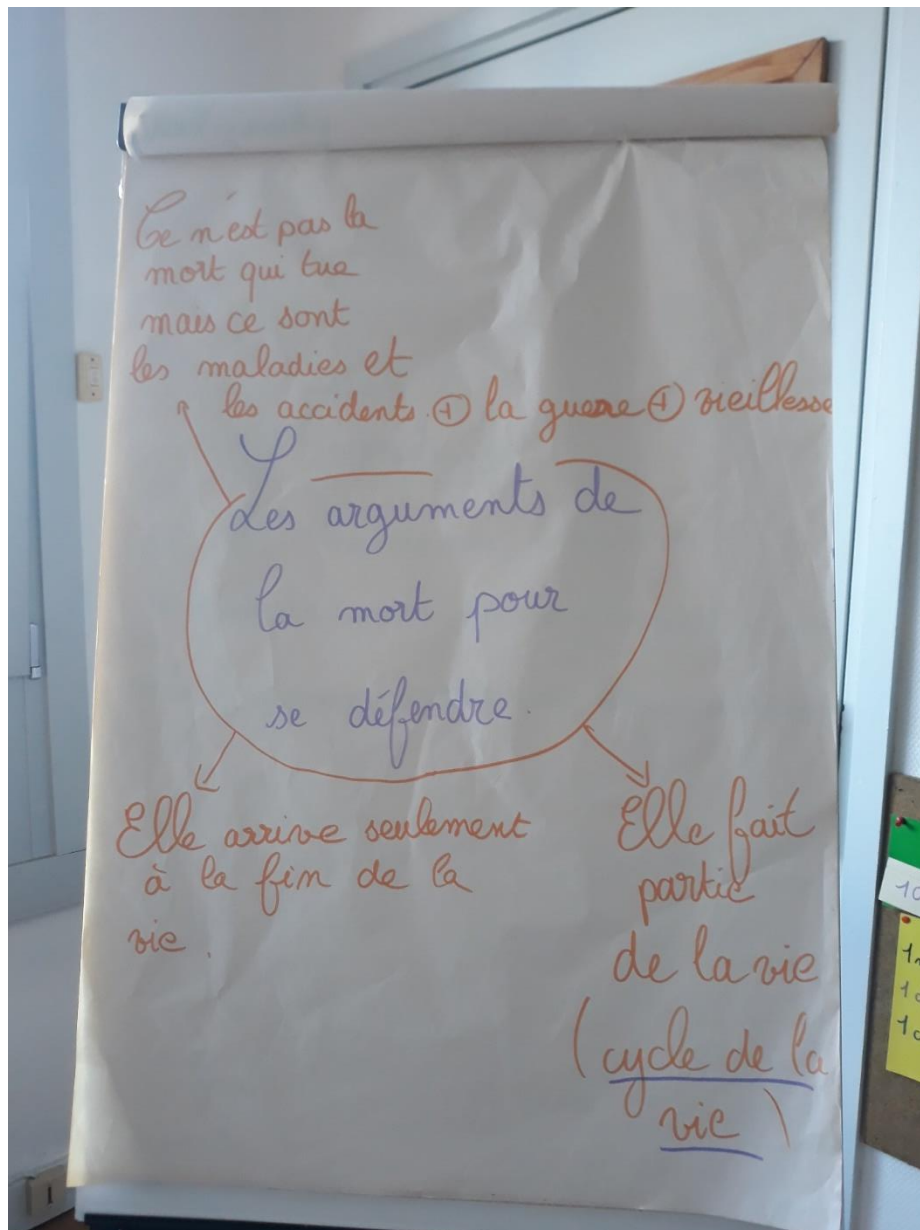 Ce n'est pas la
mort qui tue
mais ce sont
les maladies et
les accidents. + la guerre + vieillesse
Les arguments de
la mort pour
se défendre.
Elle arrive seulement
à la fin de la
vie.
Elle fait
partie
de la vie
(cycle de la
vie)
10